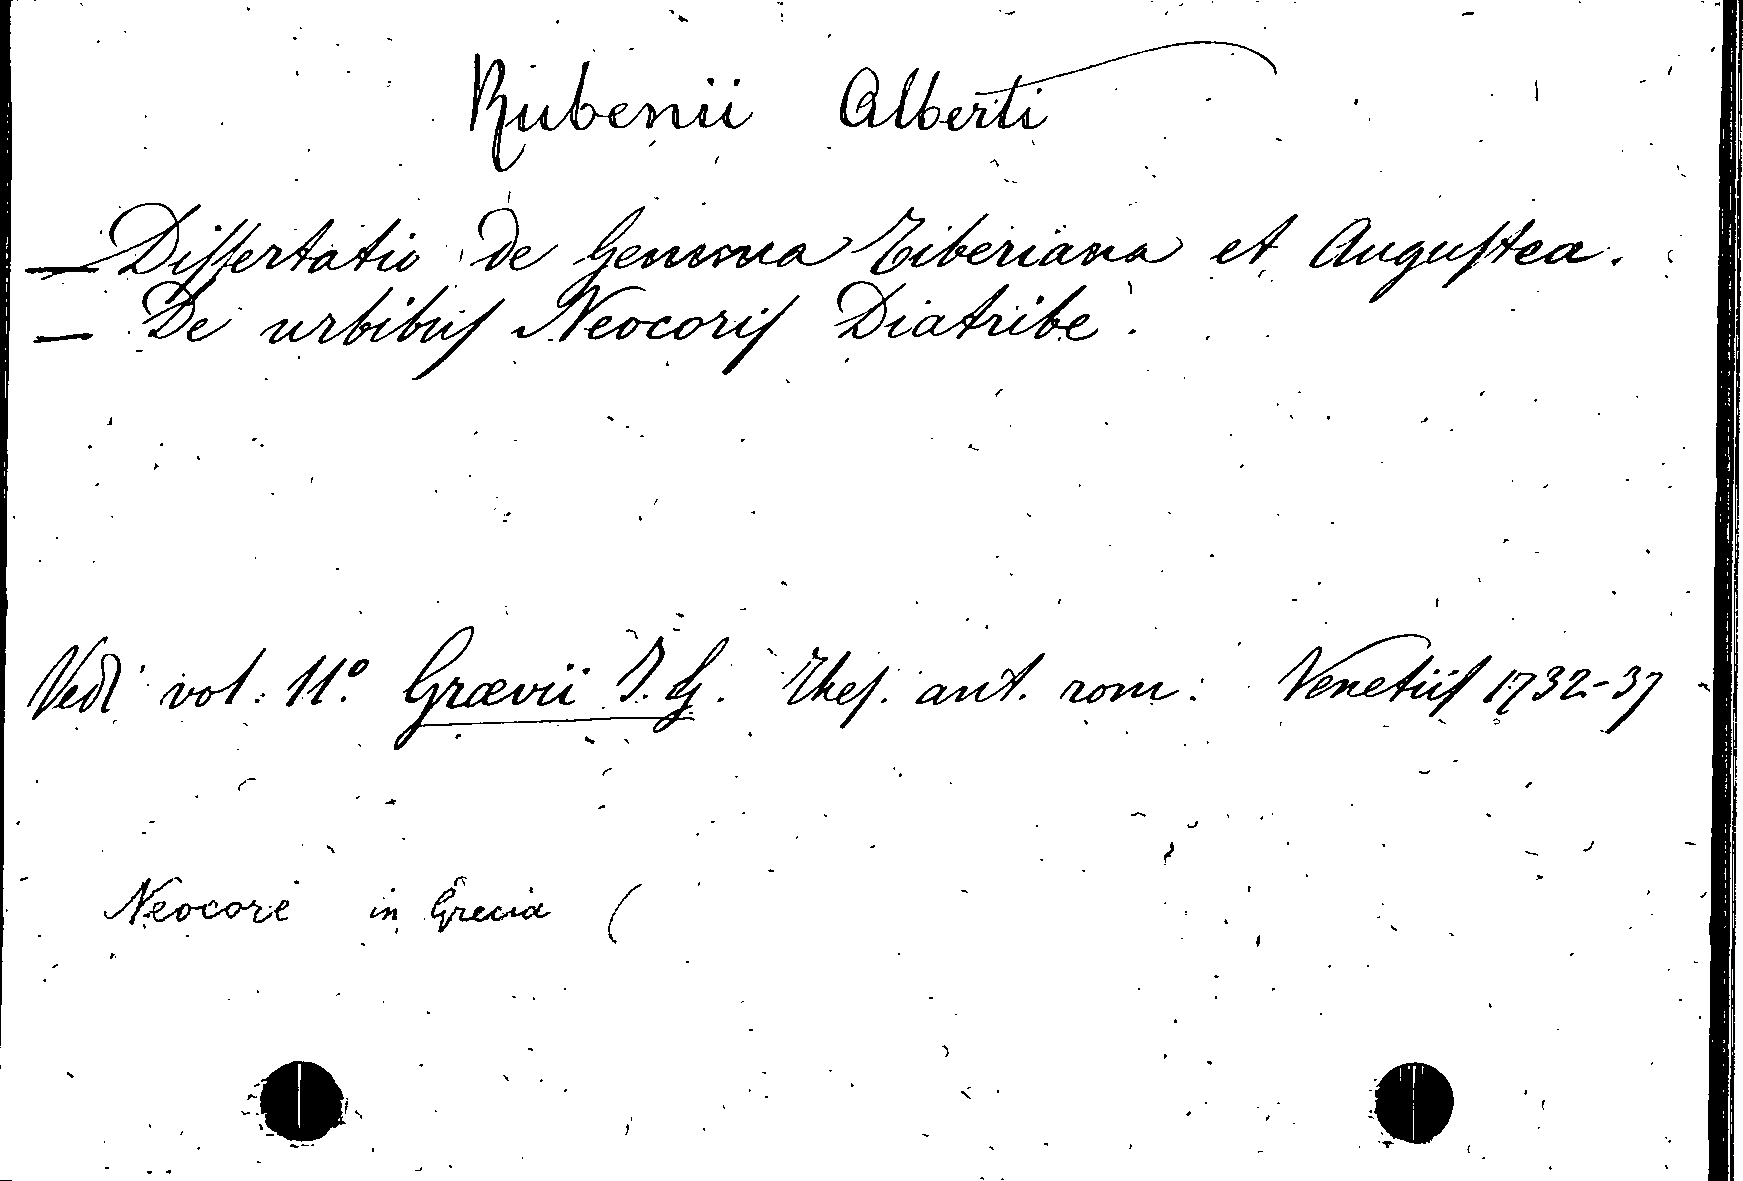 Rubenii Alberti
— Dissertatio de Gemma Tiberiana et Augustea.
— De urbibus Neocoris Diatribe.
Vedi vol. 11º. Grævii J. G. Thes. ant. rom: Venetiis 1732-37
Neocore in Grecia (